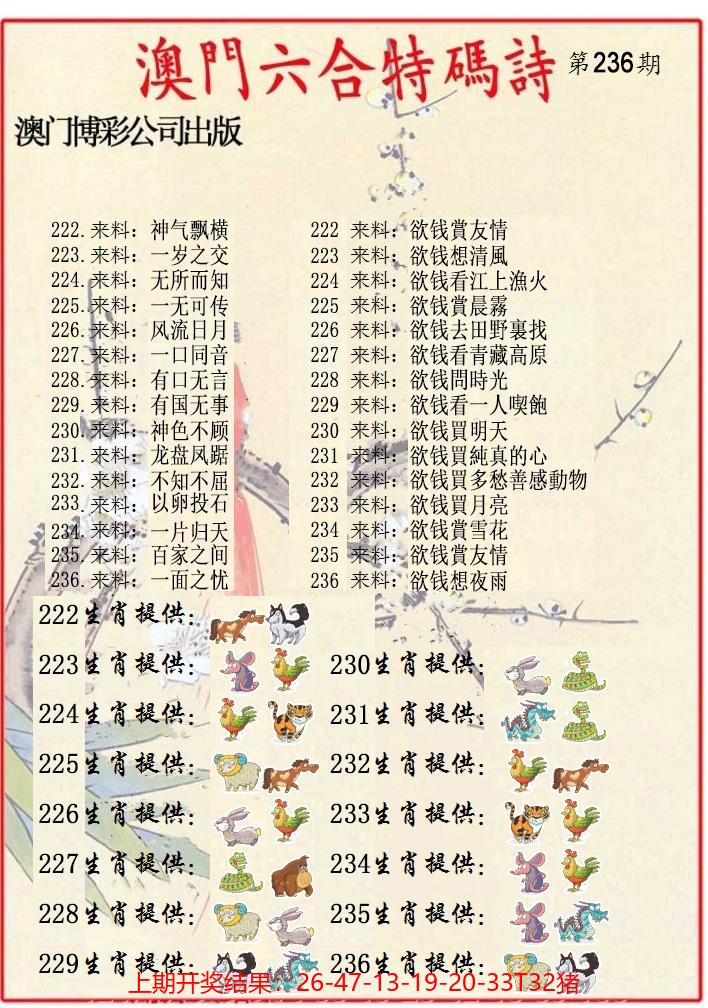 澳門六合特碼詩 第236期
澳门博彩公司出版
222.来料：神气飘横 222 来料：欲钱賞友情
223.来料：一岁之交 223 来料：欲钱想清風
224.来料：无所而知 224 来料：欲钱看江上漁火
225.来料：一无可传 225 来料：欲钱賞晨霧
226.来料：风流日月 226 来料：欲钱去田野裏找
227.来料：一口同音 227 来料：欲钱看青藏高原
228.来料：有口无言 228 来料：欲钱問時光
229.来料：有国无事 229 来料：欲钱看一人喫飽
230.来料：神色不顾 230 来料：欲钱買明天
231.来料：龙盘凤踞 231 来料：欲钱買純真的心
232.来料：不知不屈 232 来料：欲钱買多愁善感動物
233.来料：以卵投石 233 来料：欲钱買月亮
234.来料：一片归天 234 来料：欲钱賞雪花
235.来料：百家之间 235 来料：欲钱賞友情
236.来料：一面之忧 236 来料：欲钱想夜雨
222生肖提供：
223生肖提供： 230生肖提供：
224生肖提供： 231生肖提供：
225生肖提供： 232生肖提供：
226生肖提供： 233生肖提供：
227生肖提供： 234生肖提供：
228生肖提供： 235生肖提供：
229生肖提供： 236生肖提供：
上期开奖结果：26-47-13-19-20-33T32猪